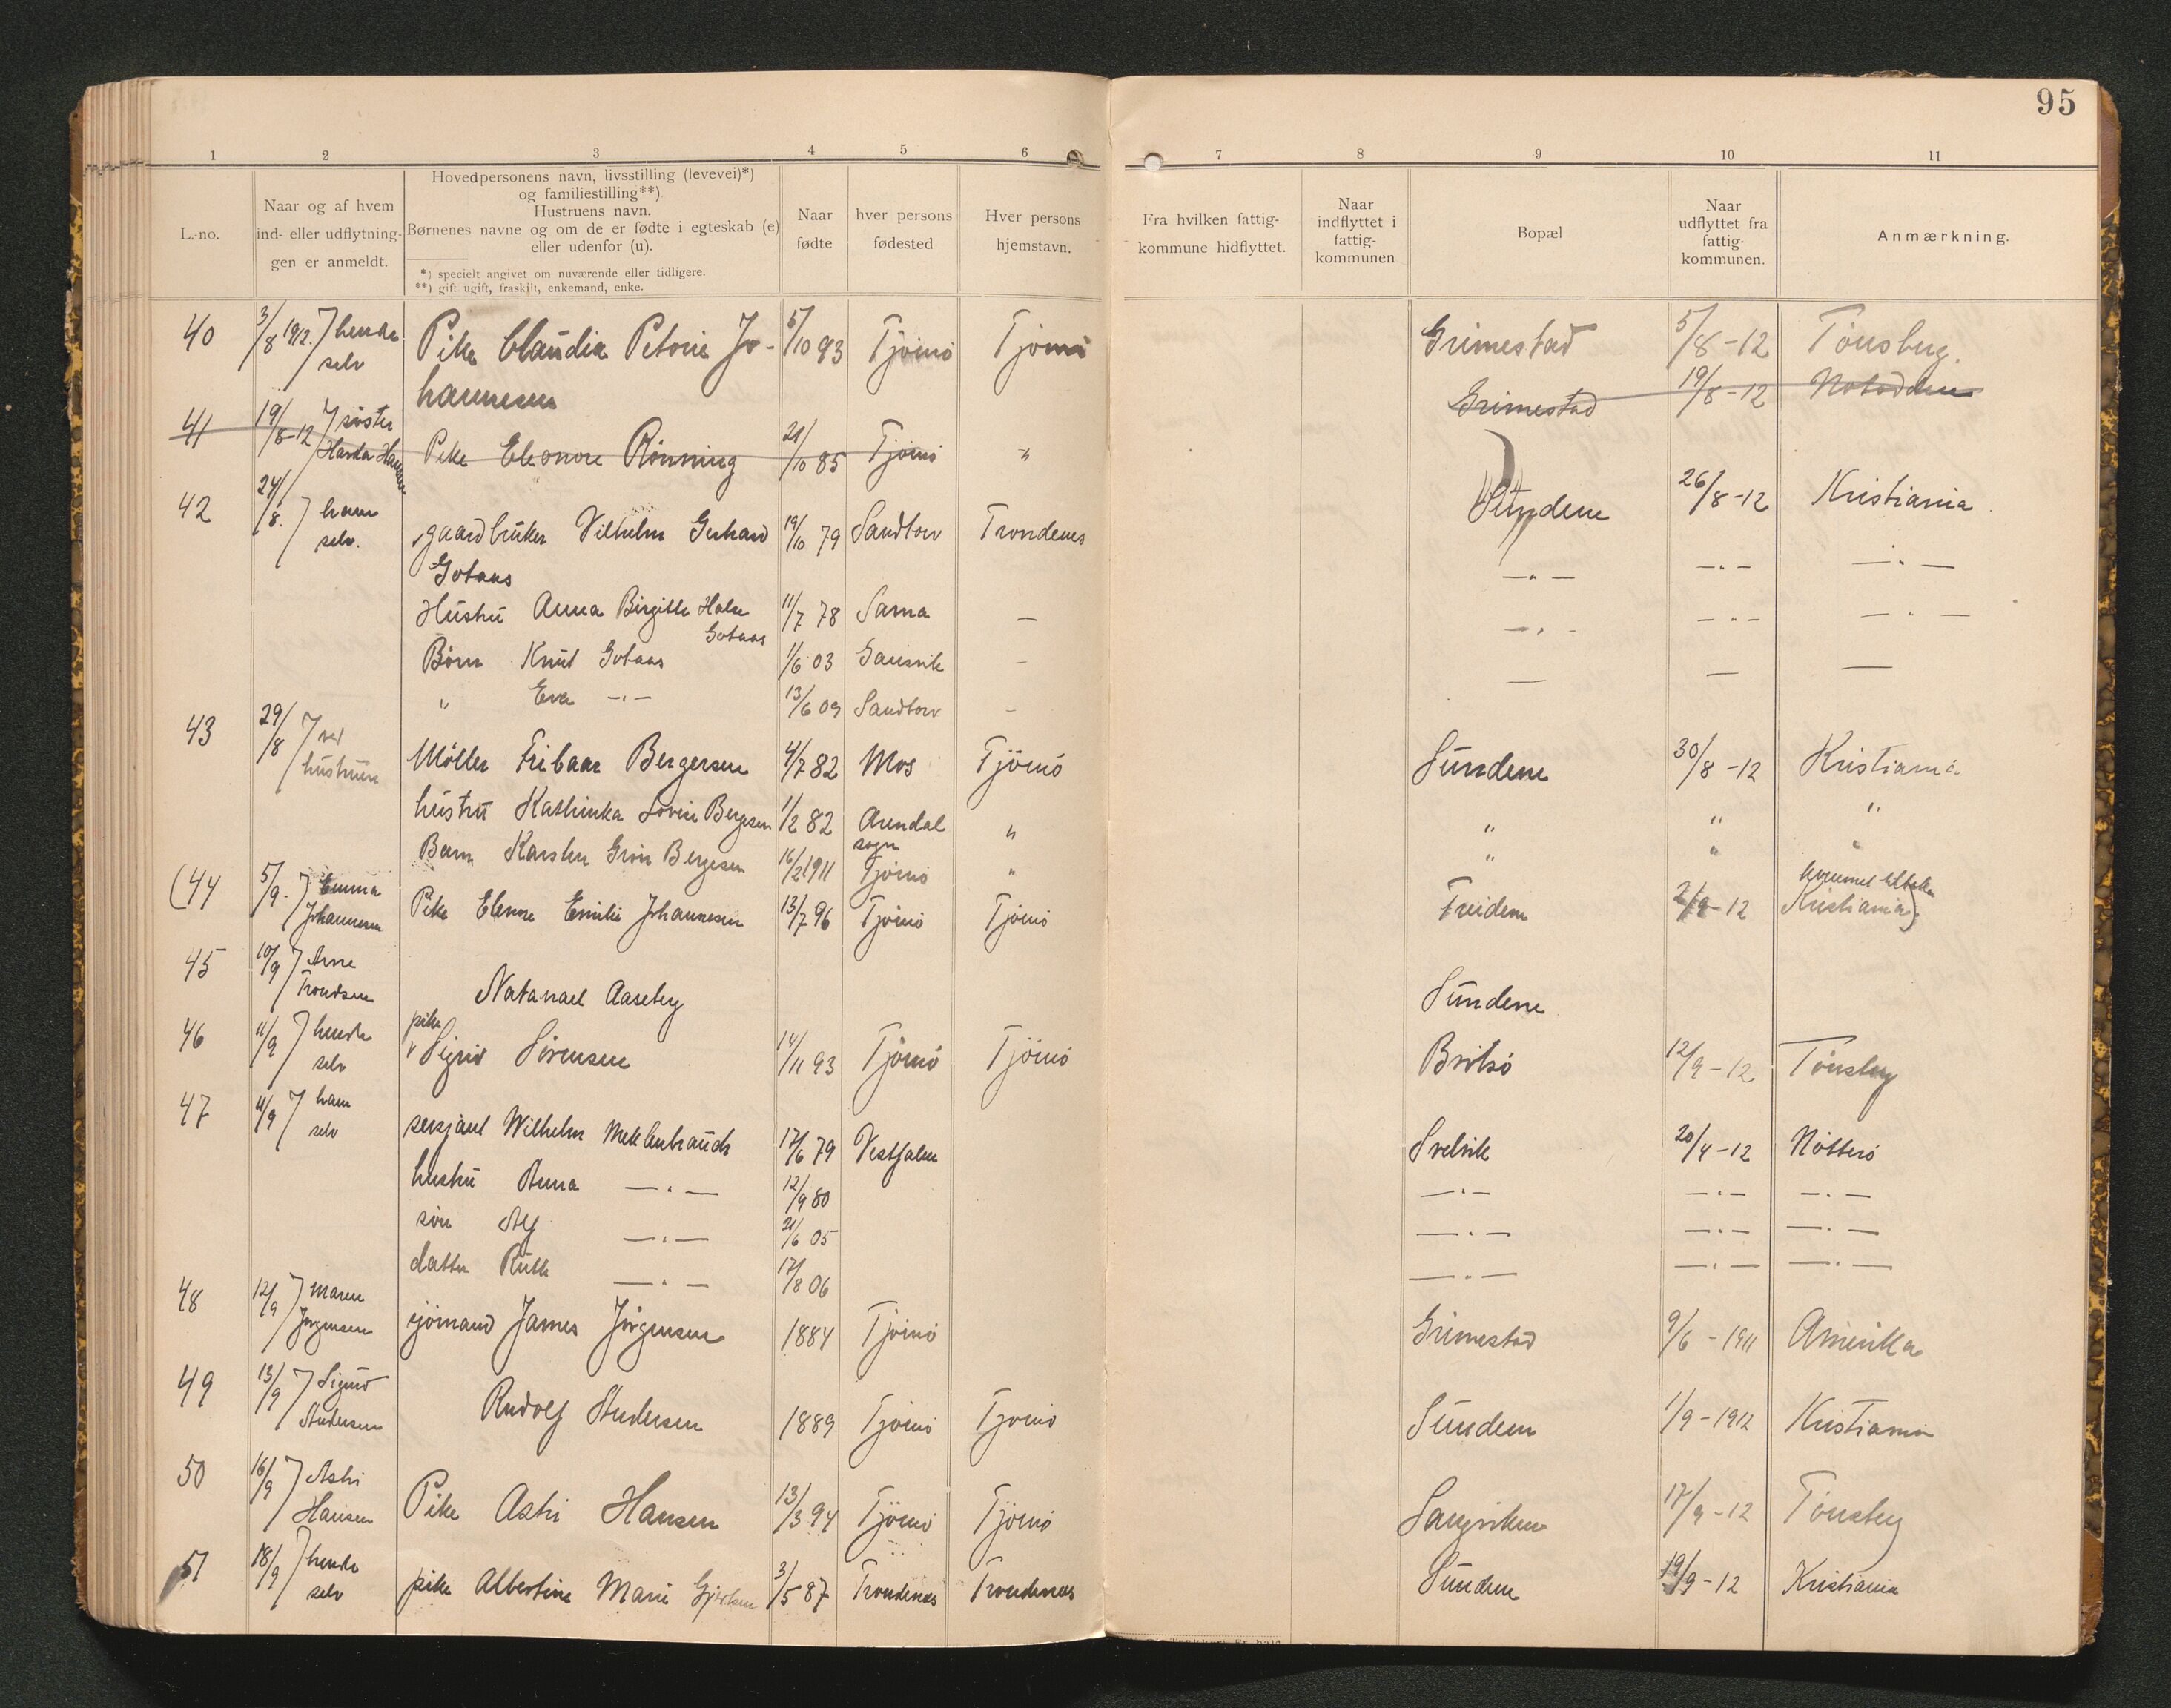 95
1 2 3 4 5 6 7 8 9 10 11
L.-no.
Naar og af hvem
ind- eller udflytnin-
gen er anmeldt.
Hovedpersonens navn, livsstilling (levevei)*)
og familiestilling**)
Hustruens navn.
Børnenes navne og om de er fødte i egteskab (e)
eller udenfor (u).
*) specielt angivet om nuværende eller tidligere.
**) gift ugift, fraskilt, enkemand, enke.
Naar
fødte
hver persons
fødested
Hver persons
hjemstavn.
Fra hvilken fattig-
kommune hidflyttet.
Naar
indflyttet i
fattig-
kommunen
Bopæl
Naar
udflyttet fra
fattig-
kommunen.
Anmærkning.
40 3/8 1912. hende Pike Claudia Petorie Jo- 5/10 93 Tjømø Tjømø Grimestad 5/8-12 Tønsberg.
selv hannesen
41 19/8-12 søster Pike Eleonore Rønning 21/10 85 Tjømø " Grimestad 19/8-12 Notodden
42 24/8. ham gaardbruker Vilhelm Gerhard 19/10 79 Sandtorv Trondenes Sundene 26/8-12 Kristiania
selv. Gotaas
Hustru Anna Birgitte Holm 11/7 78 Sama — —"— —"— —"—
Gotaas
Børn Knut Gotaas 1/6 03 Gausvik — —"— —"— —"—
" Eva —"— 13/6 09 Sandtorv — — — —
43 29/8 ved Møller Fribaar Bergersen 4/7 82 Mos Tjømø Sundene 30/8-12 Kristiania
hustruen
hustru Kathinka Lovise Bergesen 1/2 82 Arendal " " " "
sogn
Barn Karsten Grøn Bergesen 16/2 1911 Tjømø " " " "
(44 5/9. Emma Pike Elenore Emilie Johannesen 13/7 96 Tjømø Tjømø Treidene 2/9-12 Kristiania)
Johannesen kommet tilbake
45 10/9 Arne Natanael Aaseby Sundene
Trondsen
46 11/9 hende pike Sigrid Sørensen 14/11 93 Tjømø Tjømø Brøtsø 12/9-12 Tønsberg
selv
47 11/9 ham sersjant Wilhelm Meklenbrauck 17/6 79 Vestfalen Svelvik 20/4-12 Nøtterø
selv
hustru Anna —"— 12/9 80 —"— —"— —"—
søn Alf —"— 21/6 05 —"— —"— —"—
datter Ruth —"— 17/8 06 —"— —"— —"—
48 12/9 Maren sjømand James Jørgensen 1884 Tjømø Grimestad 9/6-1911 Amerika
Jørgensen
49 13/9 Sigurd Rudolf Andersen 1889 Tjømø Tjømø Sundene 1/9-1912 Kristiania
Andersen
50 16/9 Astri Pike Astri Hansen 13/3 94 Tjømø Tjømø Sangviken 17/9-12 Tønsberg
Hansen
51 18/9 hende pike Albertine Marie 3/5 87 Trondenes Trondenes Sundene 19/9-12 Kristiania
selv